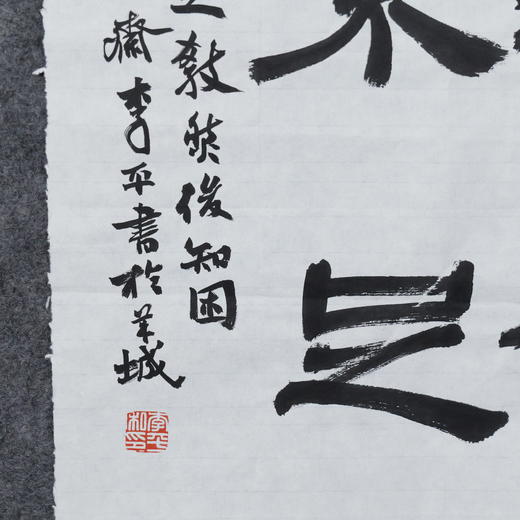 足
教然後知困
齋李平書於羊城
李平私印